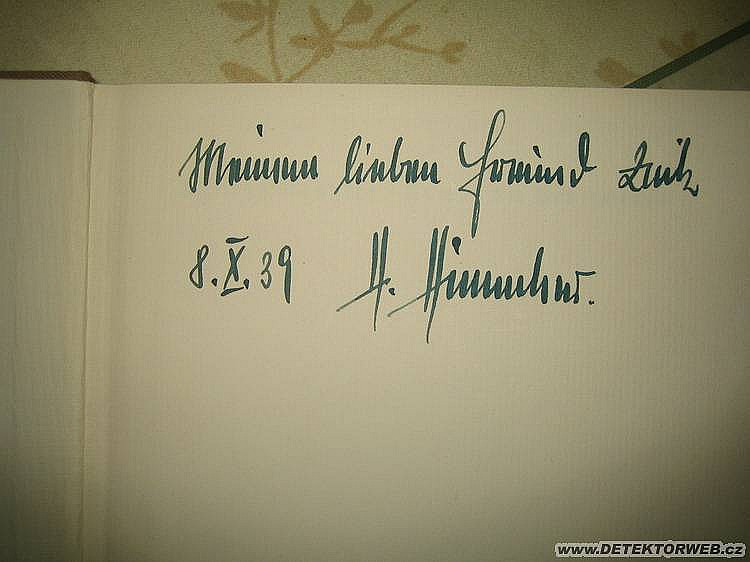 Meinem lieben Freund
8. X. 39 H. Himmler.
www.DETEKTORWEB.cz